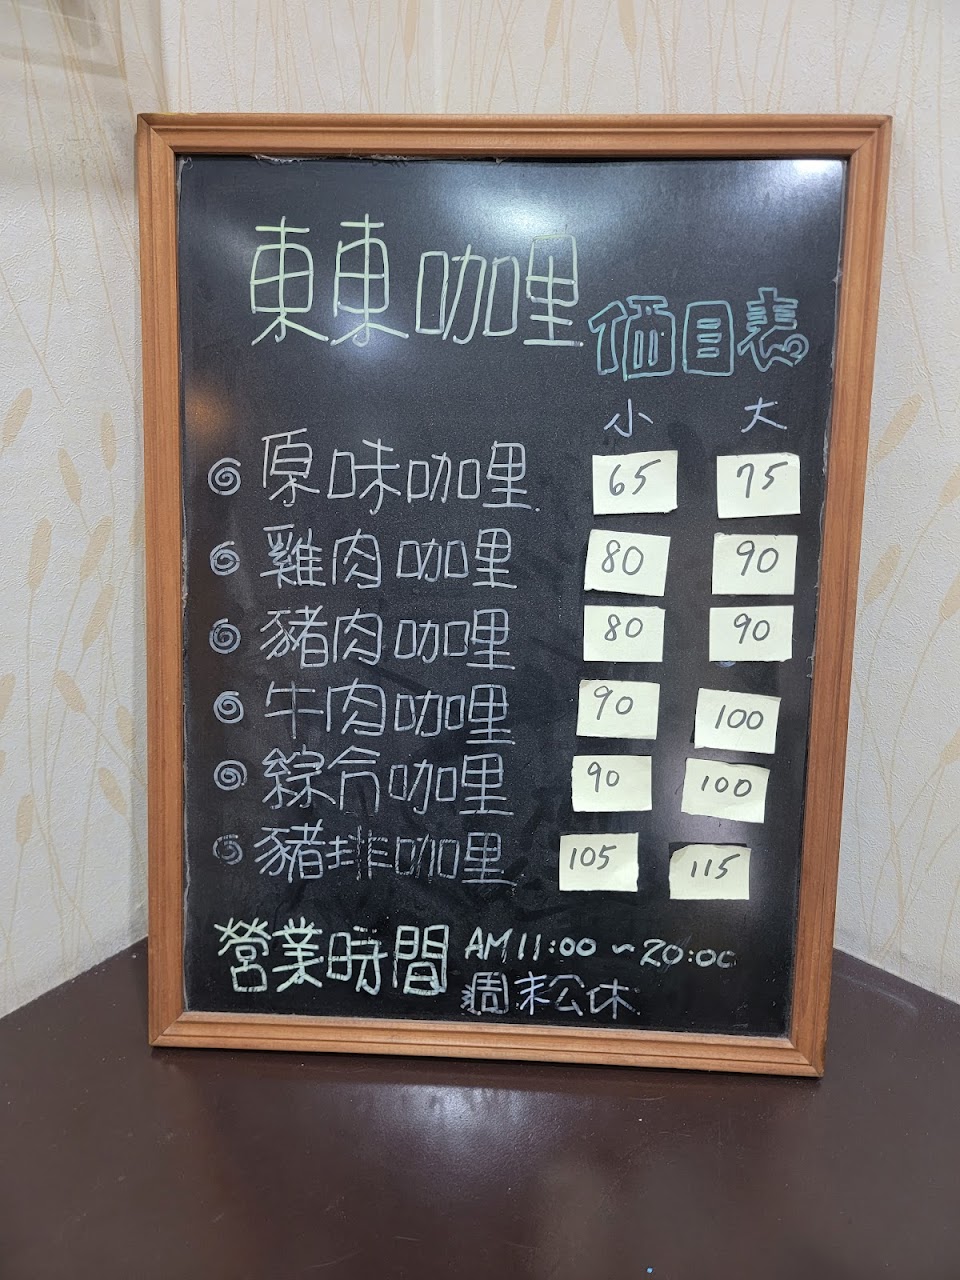 東東咖哩 価目表
小 大
原味咖哩 65 75
雞肉咖哩 80 90
豬肉咖哩 80 90
牛肉咖哩 90 100
綜合咖哩 90 100
豬排咖哩 105 115
營業時間 AM11:00～20:00
週末公休